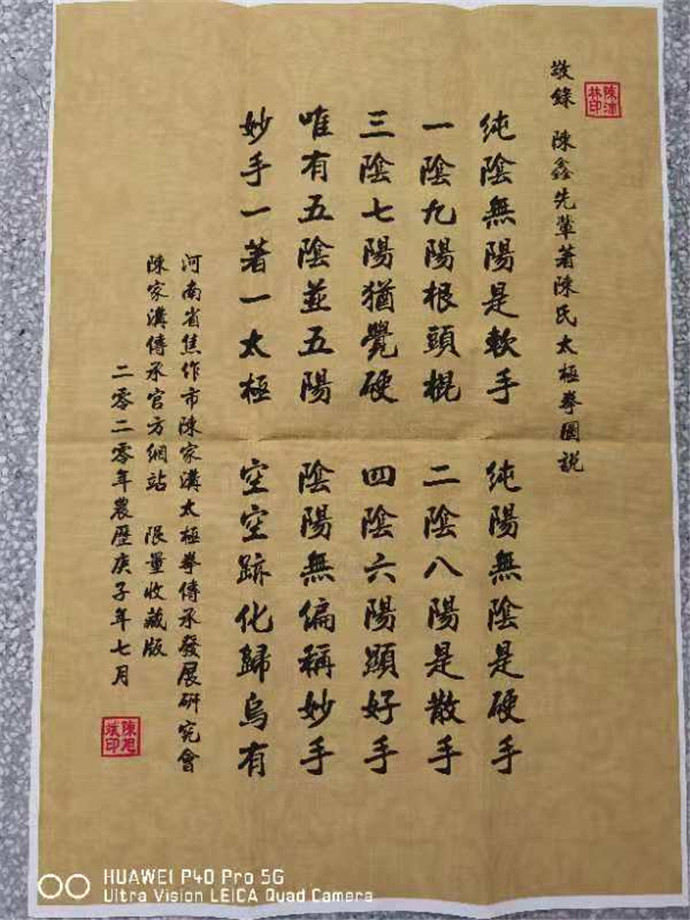 敬錄 陳鑫先輩著陳氏太極拳圖説
純陰無陽是軟手 純陽無陰是硬手
一陰九陽根頭棍 二陰八陽是散手
三陰七陽猶覺硬 四陰六陽顯好手
唯有五陰並五陽 陰陽無偏稱妙手
妙手一著一太極 空空跡化歸烏有
河南省焦作市陳家溝太極拳傳承發展研究會
陳家溝傳承官方網站 限量收藏版
二零二零年農歷庚子年七月
HUAWEI P40 Pro 5G
Ultra Vision LEICA Quad Camera